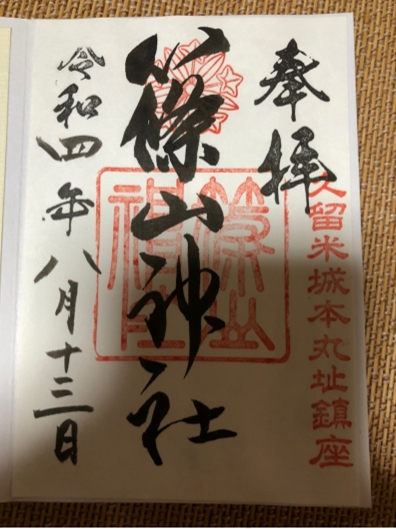 奉拝
久留米城本丸址鎮座
篠山神社
篠山神社
令和四年八月十三日